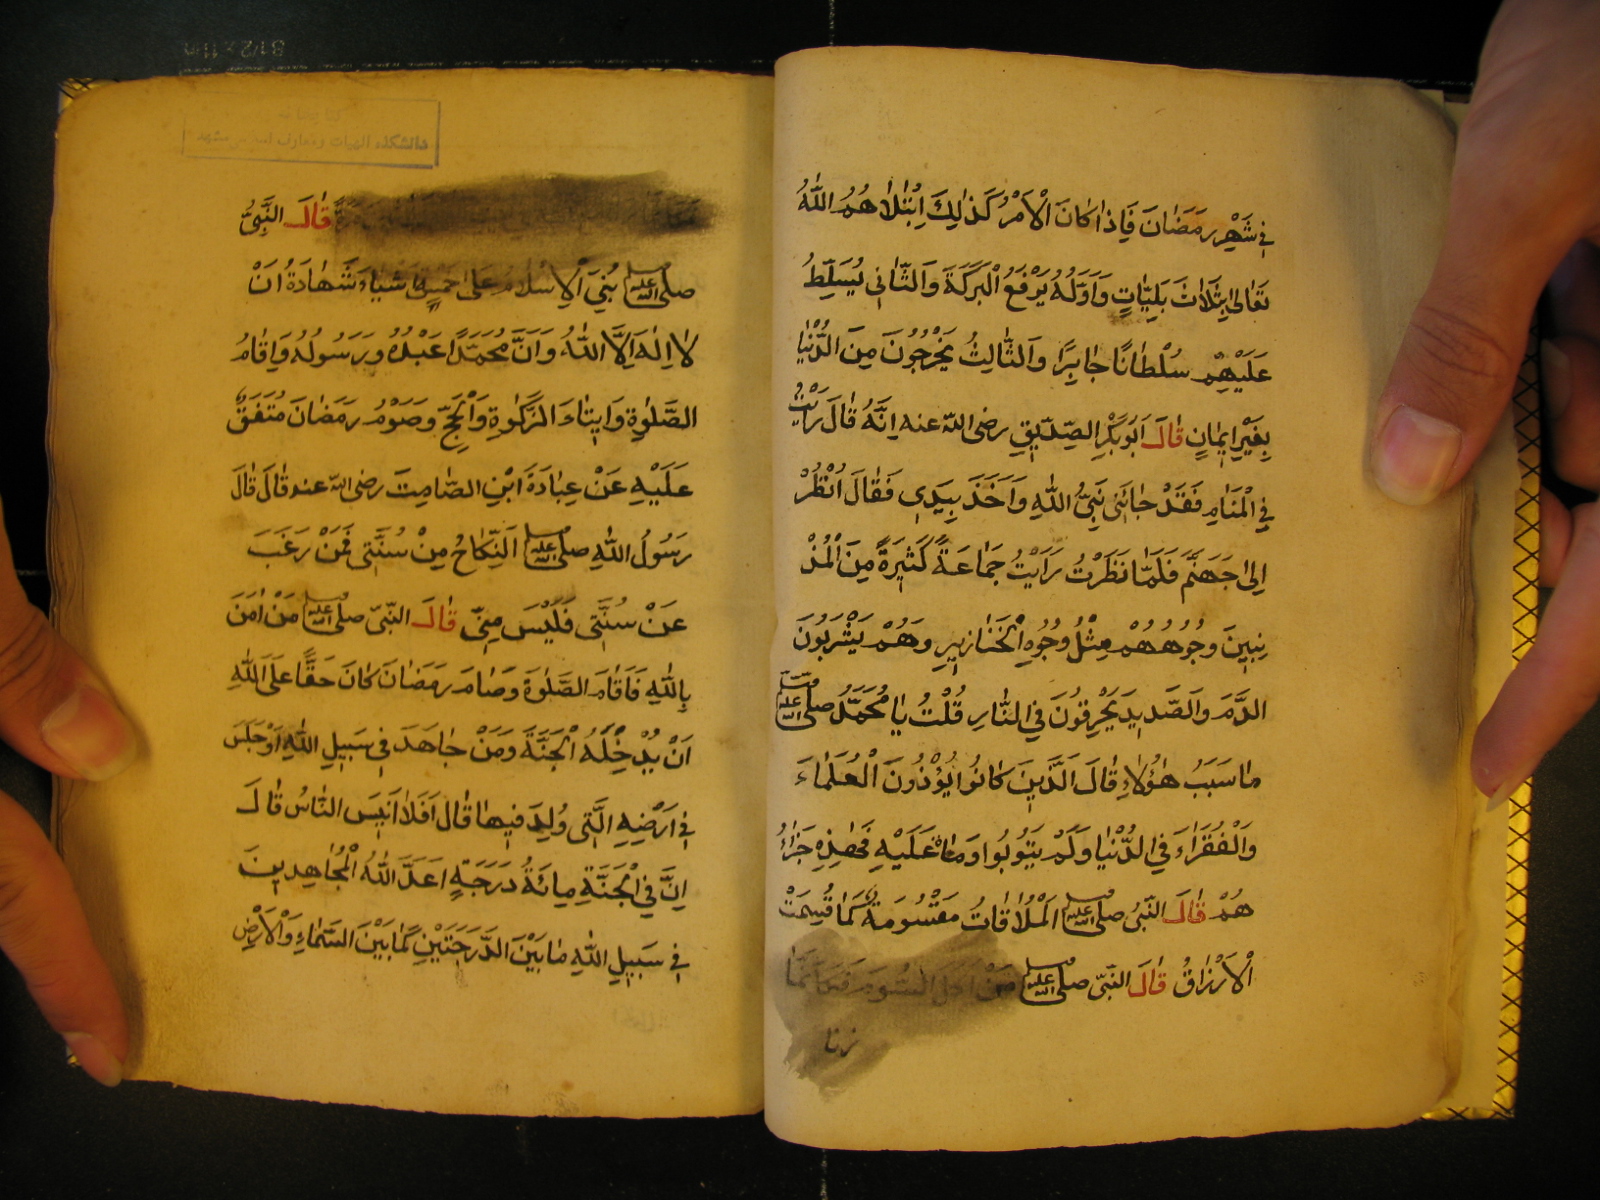 في شَهْرِ رَمَضَانَ فَإِذَا كَانَ الْأَمْرُ كَذٰلِكَ اِبْتَلَاهُمُ اللّٰهُ
تَعَالىٰ بِثَلَاثَ بَلِيَّاتٍ وَاَوَّلُهُ يَرْفَعُ الْبَرَكَةَ وَالثَّانِي يُسَلِّطُ
عَلَيْهِمْ سُلْطَانًا جَابِرًا وَالثَّالِثُ يَخْرُجُونَ مِنَ الدُّنْيَا
بِغَيْرِ اِيمَانٍ قَالَ اَبُوبَكْرِ الصِّدِّيقِ رضى اللّه عنه اِنَّهُ قَالَ رَايْتُ
فِي الْمَنَامِ فَقَدْ جَائَنِي نَبِيُّ اللّٰهِ وَاَخَذَ بِيَدِي فَقَالَ اُنْظُرْ
اِلىٰ جَهَنَّمَ فَلَمَّا نَظَرْتُ رَاَيْتُ جَمَاعَةً كَثِيرَةً مِنَ الْمُذْ
نِبِينَ وُجُوهُهُمْ مِثْلُ وُجُوهِ الْخَنَازِيرِ وَهُمْ يَشْرَبُونَ
الدَّمَ وَالصَّدِيدَ يَحْرِقُونَ فِي النَّارِ قُلْتُ يَا مُحَمَّدُ صلى اللّه عليه وسلم
مَا سَبَبُ هٰؤُلَاءِ قَالَ الَّذِينَ كَانُوا يُؤْذُونَ الْعُلَمَاءَ
وَالْفُقَرَاءَ فِي الدُّنْيَا وَلَمْ يَتُوبُوا وَمَاتَ عَلَيْهِ فَهٰذِهِ جَزَاءُ
هُمْ قَالَ النَّبِيُّ صلى اللّه عليه وسلم الْمُلَاقَاتُ مَقْسُومَةٌ كَمَا قُسِمَتْ
الْاَرْزَاقُ قَالَ النَّبِيُّ صلى اللّه عليه وسلم مَنْ اَكَلَ الثُّومَ فَكَاَنَّمَا
زنا
قَالَ النَّبِيُّ
صلى اللّه عليه وسلم بُنِيَ الْاِسْلَامُ عَلىٰ خَمْسَةِ اَشْيَاءَ شَهَادَةُ اَنْ
لَا اِلٰهَ اِلَّا اللّٰهُ وَاَنَّ مُحَمَّدًا عَبْدُهُ وَرَسُولُهُ وَاِقَامُ
الصَّلٰوةِ وَاِيتَاءَ الزَّكٰوةِ وَالْحَجِّ وَصَوْمُ رَمَضَانَ مُتَّفَقٌ
عَلَيْهِ عَنْ عِبَادَةَ ابْنِ الصَّامِتِ رضى اللّه عنه قَالَ قَالَ
رَسُولُ اللّٰهِ صلى اللّه عليه وسلم النِّكَاحُ مِنْ سُنَّتِي فَمَنْ رَغَبَ
عَنْ سُنَّتِي فَلَيْسَ مِنِّي قَالَ النَّبِيُّ صلى اللّه عليه وسلم مَنْ اٰمَنَ
بِاللّٰهِ فَاَقَامَ الصَّلٰوةَ وَصَامَ رَمَضَانَ كَانَ حَقًّا عَلَى اللّٰهِ
اَنْ يُدْخِلَهُ الْجَنَّةَ وَمَنْ جَاهَدَ فِي سَبِيلِ اللّٰهِ اَوْ جَلَسَ
فِي اَرْضِهِ الَّتِي وُلِدَ فِيهَا قَالَ اَفَلَا اُنَبِّسَ النَّاسُ قَالَ
اِنَّ فِي الْجَنَّةِ مِائَةُ دَرَجَةٍ اَعَدَّ اللّٰهُ الْمُجَاهِدِينَ
فِي سَبِيلِ اللّٰهِ مَا بَيْنَ الدَّرَجَتَيْنِ كَمَا بَيْنَ السَّمَاءِ وَالْاَرْضِ